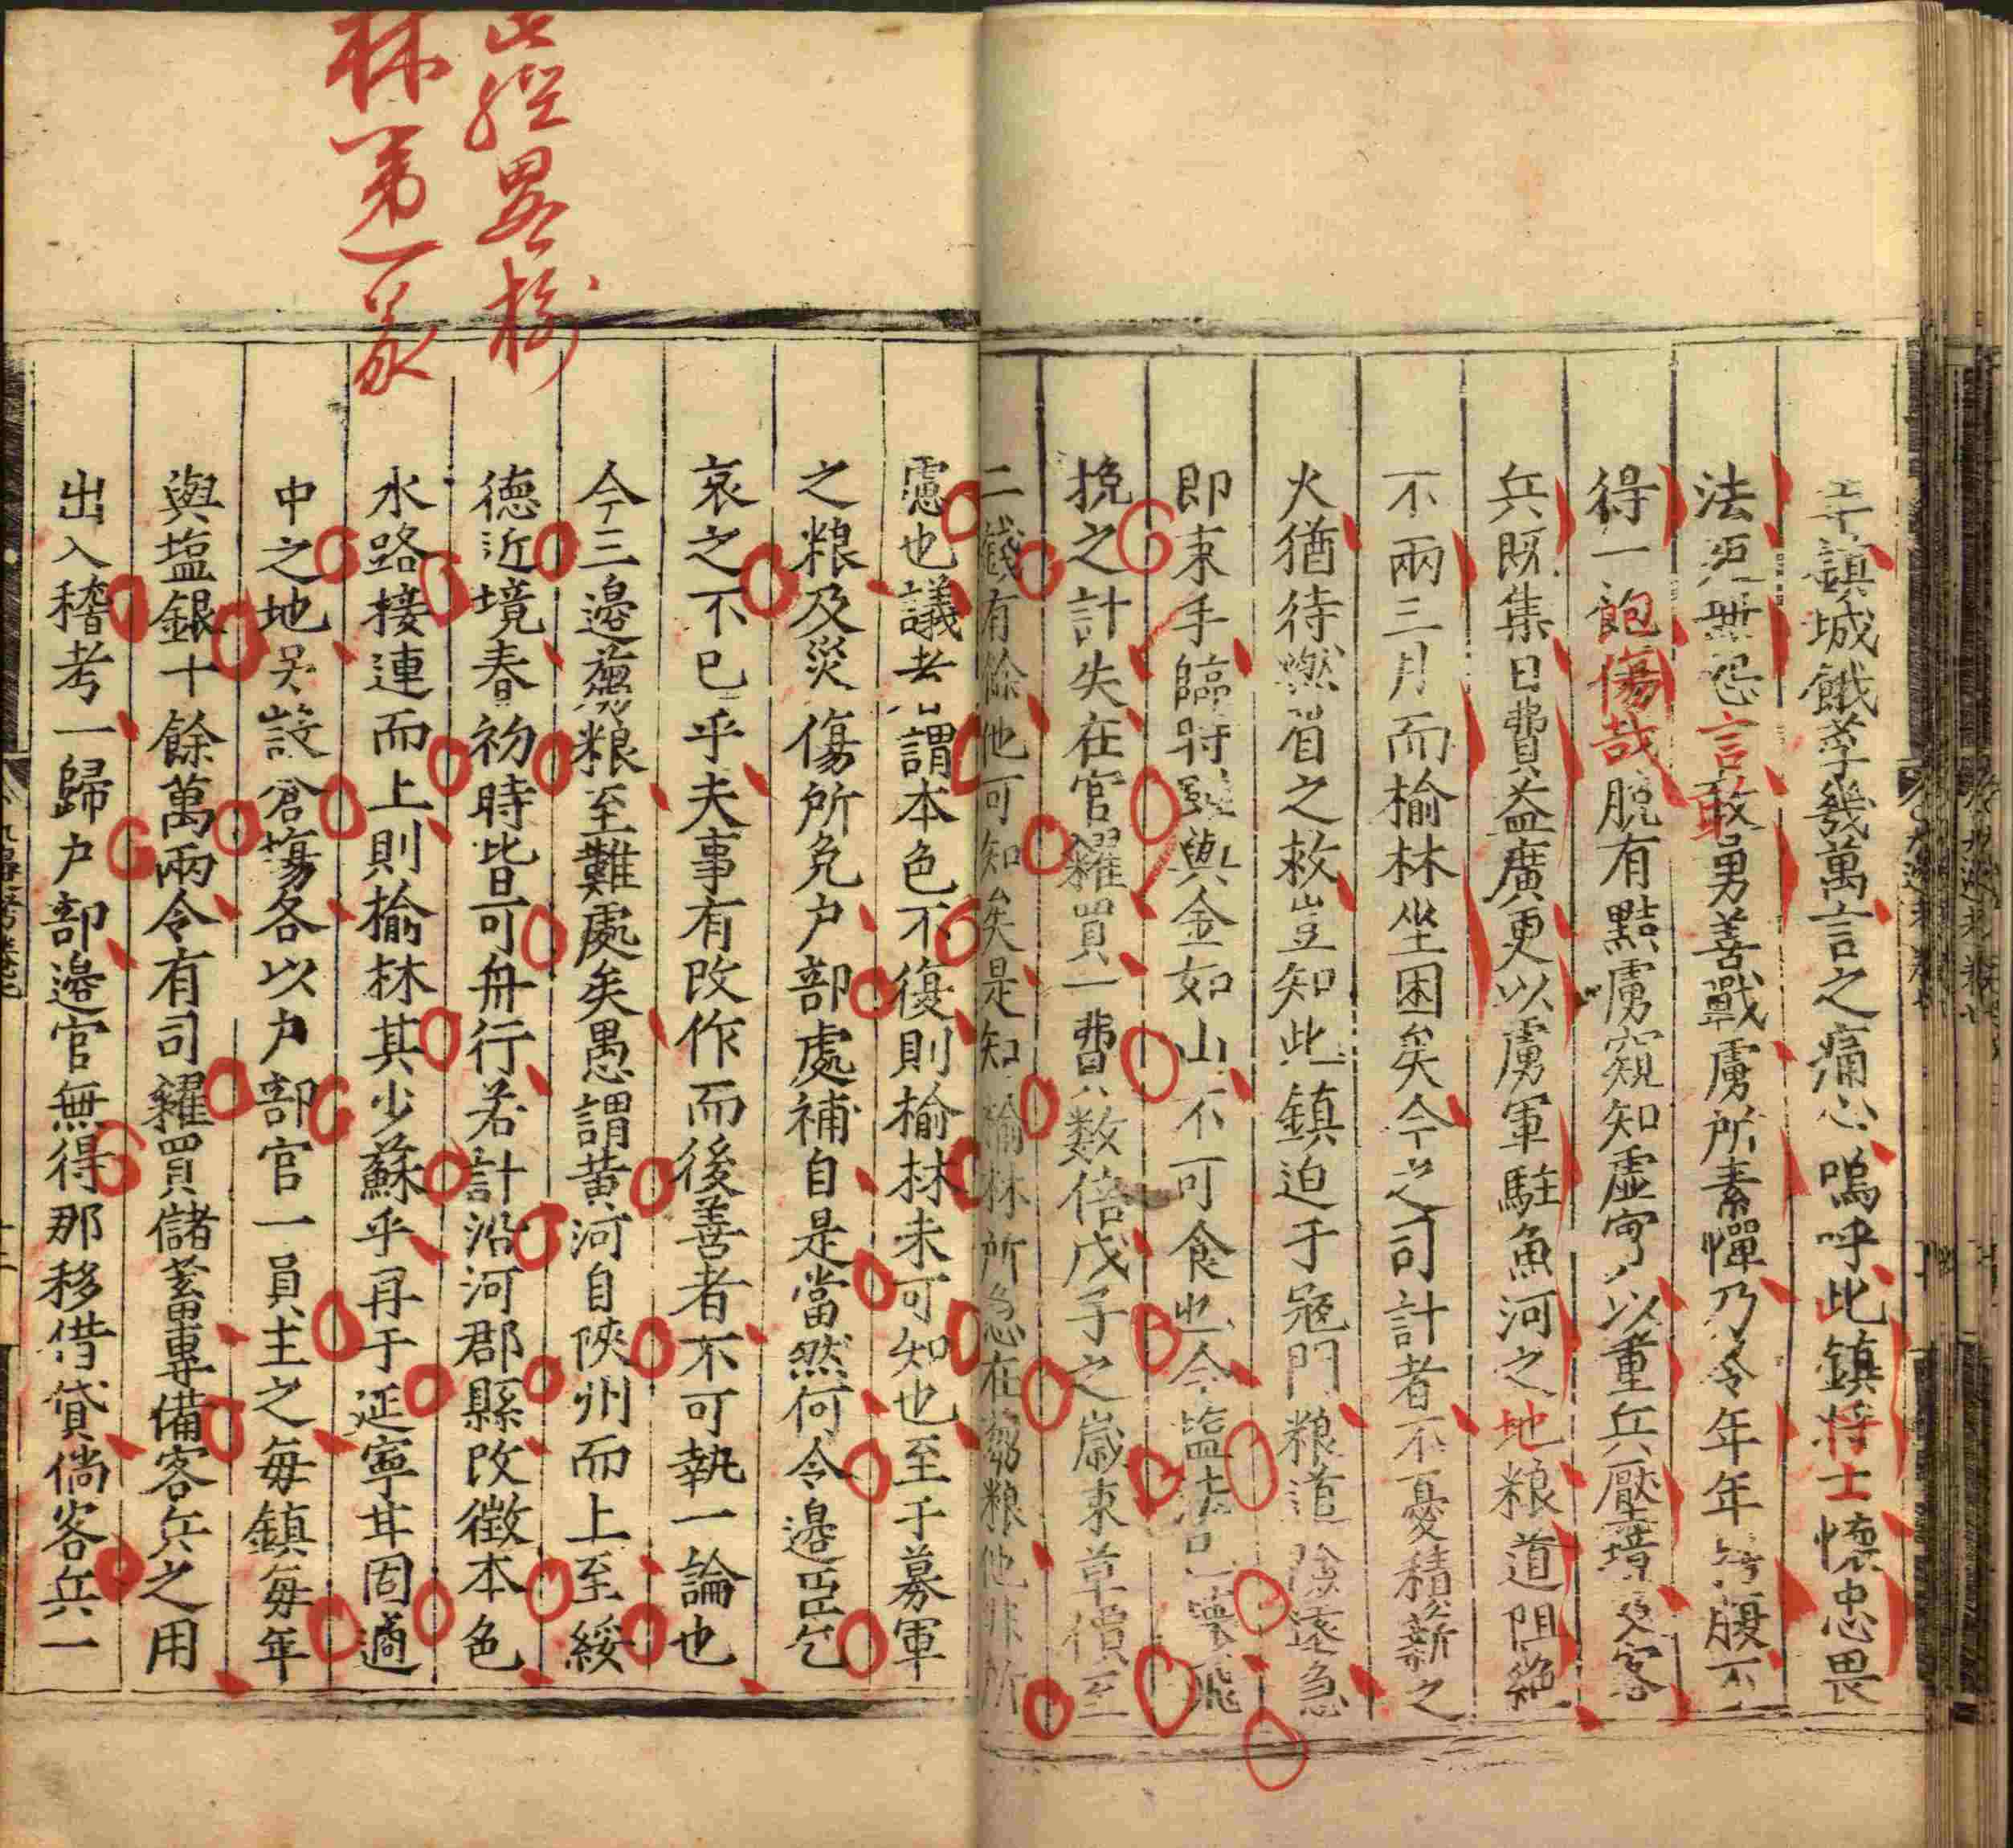 鎮城餓莩幾萬言之痛心嗚呼比鎮將士懷忠畏
法死無怨言敢勇善戰虜所素憚乃令年年枵腹不
得一飽傷哉脫有黠虜窺知虛實以重兵壓境客
兵既集日費益廣更以虜軍駐魚河之地粮道阻絶
不兩三月而榆林坐困矣今之司計者不憂積薪之
火猶待燃眉之救豈知此鎮迫于冦門粮道險遠急
即束手臨時雖輿金如山不可食也今塩法一壞飛
挽之計失在官糴買一費数倍戊子之歲束草價至
二錢有餘他可知矣是知榆林所急在芻粮他非所
慮也議者謂本色不復則榆林未可知也至于募軍
之粮及災傷所免户部處補自是當然何令邊臣乞
哀之不已乎夫事有改作而後善者不可執一論也
今三邊蒭粮至難處矣愚謂黄河自陝州而上至綏
德近境春初時皆可舟行若計沿河郡縣改徵本色
水路接連而上則榆林其少蘇乎再于延寧甘固適
中之地另設倉場各以户部官一員主之毎鎮毎年
與塩銀十餘萬兩令有司糴買儲蓄專備客兵之用
出入稽考一歸户部邊官無得那移借貸倘客兵一
經畧榆
林第一義